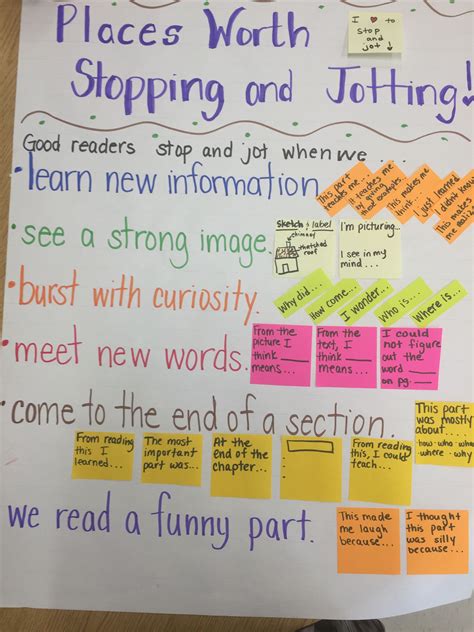 Places Worth
Stopping and Jotting!
I ♥ to
stop
and
jot ↓
Good readers stop and jot when we...
• learn new information.
This part
teaches me...
It teaches me
by giving
these examples...
This makes me
think...
I just learned
I didn't know
This makes
me
• see a strong image.
Sketch & label
chimney
thatched
roof
I'm picturing...
I see in my
mind...
• burst with curiosity.
Why did...
How come...
I wonder...
Who is...
Where is...
• meet new words.
From the
picture I
think ____
means...
From the
text, I
think ____
means...
I could
not figure
out the
word ____
on pg. __
• come to the end of a section.
This part
was mostly
about....
how · who · when
where · why
From reading
this I
learned...
The most
important
part was...
At the
end of the
chapter...
From reading
this, I could
teach...
we read a funny part.
This made
me laugh
because...
I thought
this part
was silly
because...